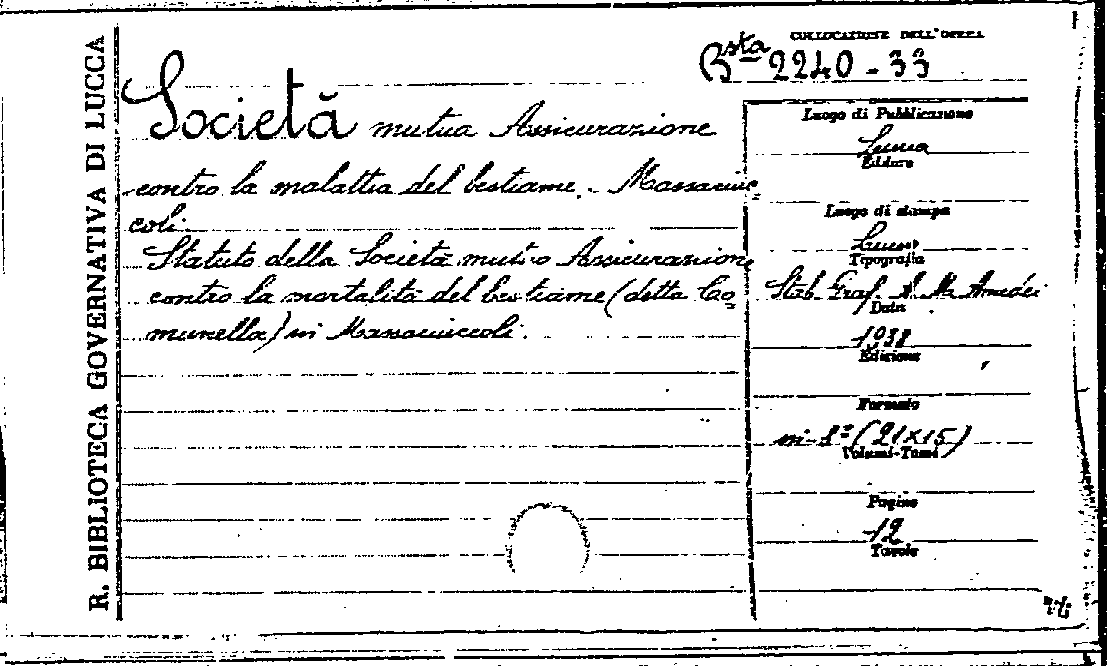 R. BIBLIOTECA GOVERNATIVA DI LUCCA
COLLOCAZIONE DELL'OPERA
Bsta 2240-33
Società mutua Assicurazione
contro la malattia del bestiame. - Massaciuc=
coli.
Statuto della Società mutua Assicurazione
contro la mortalità del bestiame (detta Co=
munella) in Massaciuccoli.
Luogo di Pubblicazione
Lucca
Editore
Luogo di stampa
Lucca
Tipografia
Stab. Graf. A. M. Amedei
Data
1938
Edizione
Formato
in-8º (21x15)
Volumi-Tomi
Pagine
12
Tavole